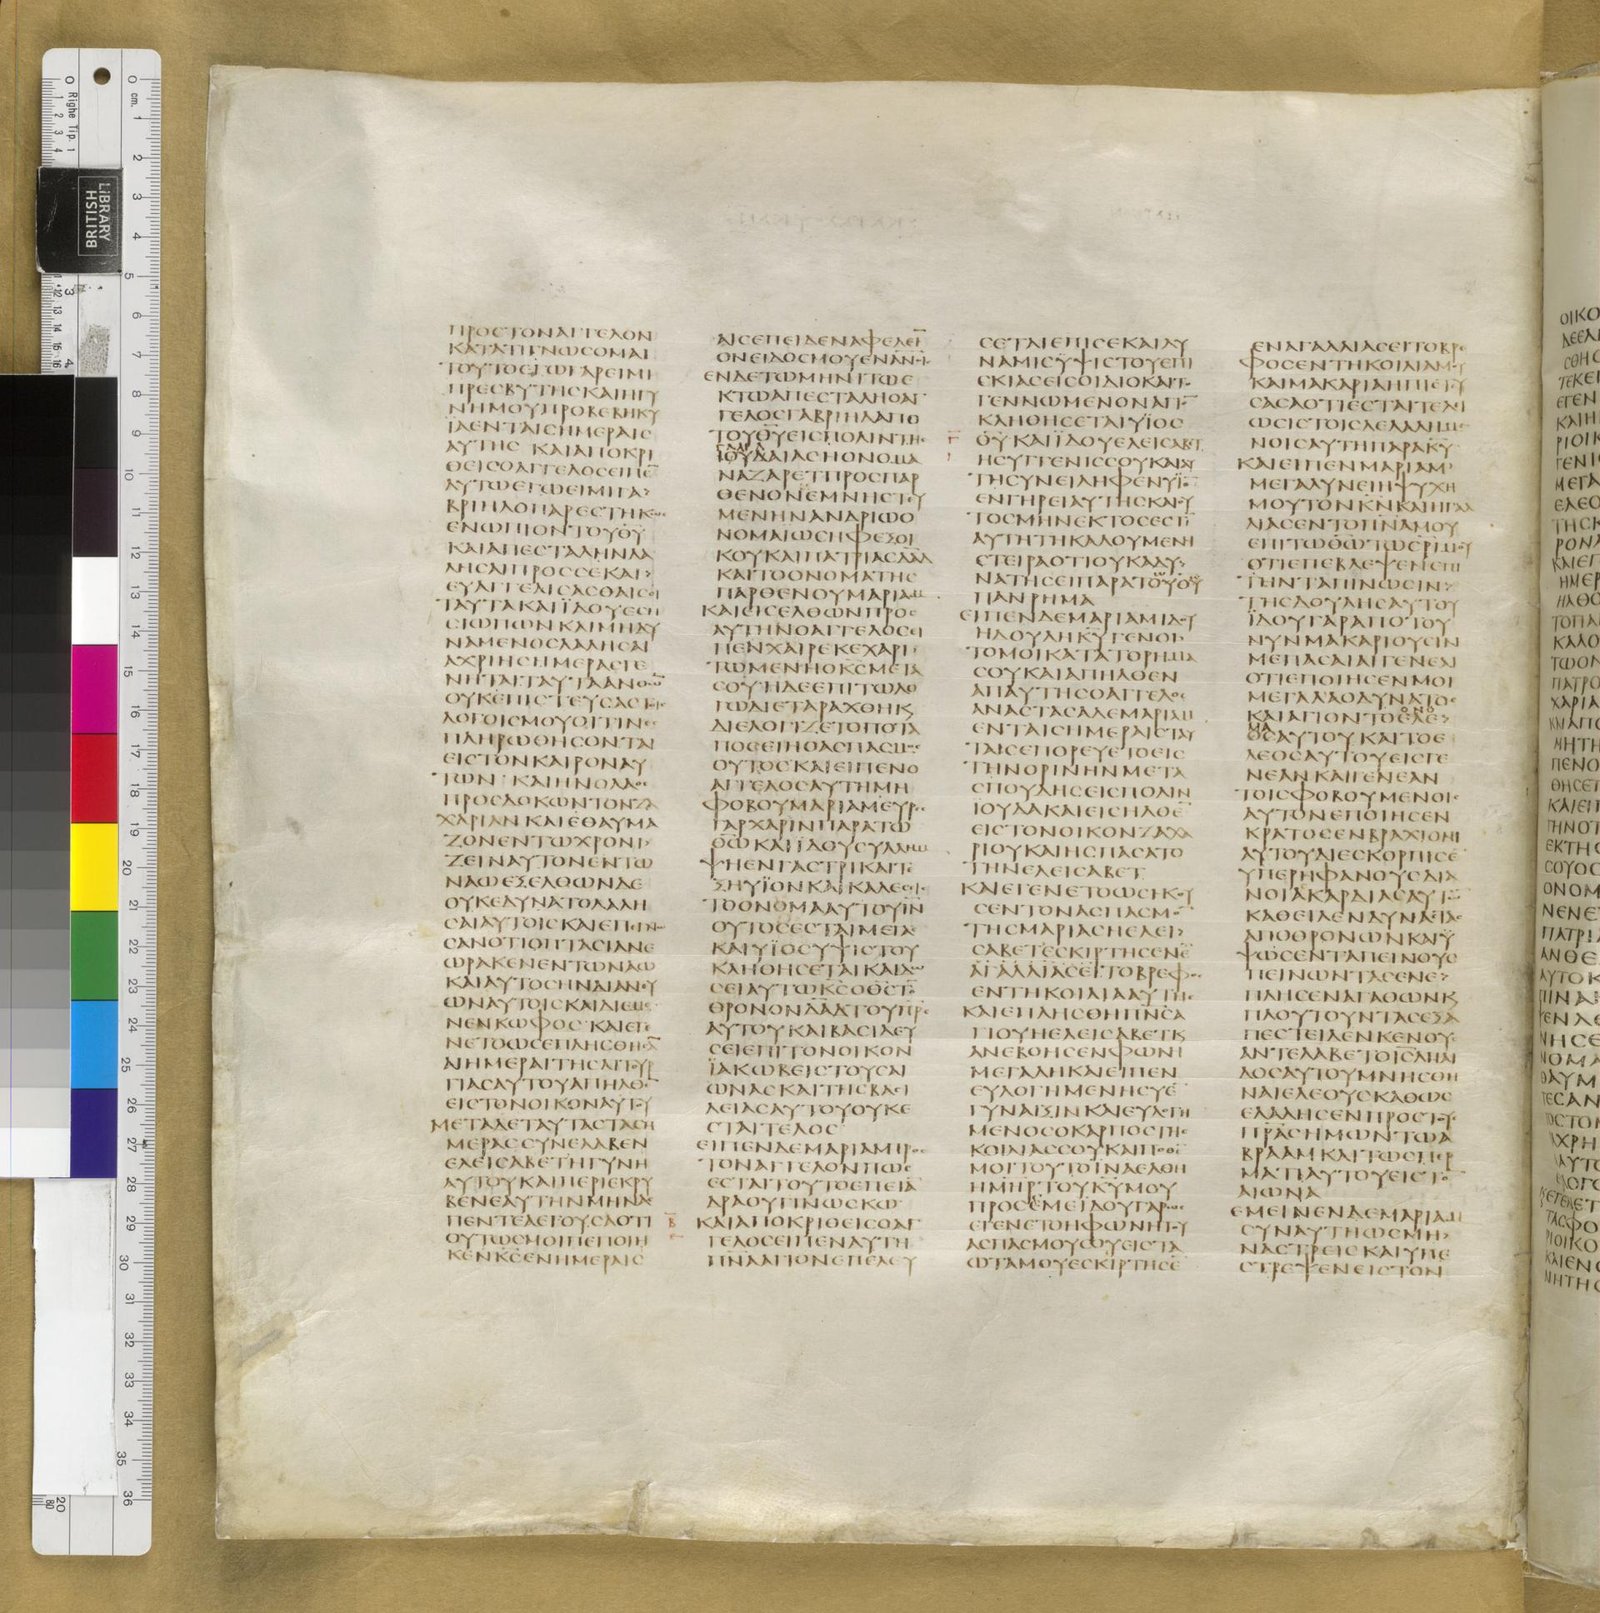 ΠΡΟϹΤΟΝΑΓΓΕΛΟΝ
ΚΑΤΑΤΙΓΝΩϹΟΜΑΙ
ΤΟΥΤΟΕΓΩΓΑΡΕΙΜΙ
ΠΡΕϹΒΥΤΗϹΚΑΙΗΓΥ
ΝΗΜΟΥΠΡΟΒΕΒΗΚΥ
ΙΑΕΝΤΑΙϹΗΜΕΡΑΙϹ
ΑΥΤΗϹ ΚΑΙΑΠΟΚΡΙ
ΘΕΙϹΟΑΓΓΕΛΟϹΕΙΠΕ̅
ΑΥΤΩΕΓΩΕΙΜΙΓΑ>
ΒΡΙΗΛΟΠΑΡΕϹΤΗΚΩϹ
ΕΝΩΠΙΟΝΤΟΥΘ̅Υ̅
ΚΑΙΑΠΕϹΤΑΛΗΝΛΑ
ΛΗϹΑΙΠΡΟϹϹΕΚΑΙ>
ΕΥΑΓΓΕΛΙϹΑϹΘΑΙϹΟΙ
ΤΑΥΤΑΚΑΙΪΔΟΥΕϹΗ
ϹΙΩΠΩΝΚΑΙΜΗΔΥ
ΝΑΜΕΝΟϹΛΑΛΗϹΑΙ
ΑΧΡΙΗϹΗΜΕΡΑϹΓΕ
ΝΗΤΑΙΤΑΥΤΑΑΝΘΩ̅
ΟΥΚΕΠΙϹΤΕΥϹΑϹΤΟΙϹ
ΛΟΓΟΙϹΜΟΥΟΙΤΙΝΕϹ
ΠΛΗΡΩΘΗϹΟΝΤΑΙ
ΕΙϹΤΟΝΚΑΙΡΟΝΑΥ
ΤΩΝ· ΚΑΙΗΝΟΛΑΟϹ
ΠΡΟϹΔΟΚΩΝΤΟΝΖΑ
ΧΑΡΙΑΝΚΑΙΕΘΑΥΜΑ
ΖΟΝΕΝΤΩΧΡΟΝΙ>
ΖΕΙΝΑΥΤΟΝΕΝΤΩ
ΝΑΩΕΞΕΛΘΩΝΔΕ
ΟΥΚΕΔΥΝΑΤΟΛΑΛΗ
ϹΑΙΑΥΤΟΙϹΚΑΙΕΠΕΓΝΩ
ϹΑΝΟΤΙΟΠΤΑϹΙΑΝΕ
ΩΡΑΚΕΝΕΝΤΩΝΑΩ
ΚΑΙΑΥΤΟϹΗΝΔΙΑΝΕΥ
ΩΝΑΥΤΟΙϹΚΑΙΔΙΕΜΕ
ΝΕΝΚΩΦΟϹ· ΚΑΙΕΓΕ
ΝΕΤΟΩϹΕΠΛΗϹΘΗϹΑ̅
ΑΙΗΜΕΡΑΙΤΗϹΛΙΤΟΥΡ
ΓΙΑϹΑΥΤΟΥΑΠΗΛΘΕ̅
ΕΙϹΤΟΝΟΙΚΟΝΑΥΤΟΥ
ΜΕΤΑΔΕΤΑΥΤΑϹΤΑϹΗ
ΜΕΡΑϹϹΥΝΕΛΑΒΕΝ
ΕΛΕΙϹΑΒΕΤΗΓΥΝΗ
ΑΥΤΟΥΚΑΙΠΕΡΙΕΚΡΥ
ΒΕΝΕΑΥΤΗΝΜΗΝΑϹ
ΠΕΝΤΕΛΕΓΟΥϹΑΟΤΙ
ΟΥΤΩϹΜΟΙΠΕΠΟΙΗ
ΚΕΝΚ̅Ϲ̅ΕΝΗΜΕΡΑΙϹ
ΑΙϹΕΠΕΙΔΕΝΑΦΕΛΕΙ̅
ΟΝΕΙΔΟϹΜΟΥΕΝΑΝΟΙϹ
ΕΝΔΕΤΩΜΗΝΙΤΩΕ
ΚΤΩΑΠΕϹΤΑΛΗΟΑΓ
ΓΕΛΟϹΓΑΒΡΙΗΛΑΠΟ
ΤΟΥΘ̅Υ̅ΕΙϹΠΟΛΙΝΤΗϹ
ΓΑΛΙΛ
ΙΟΥΔΑΙΑϹΗΟΝΟΜΑ
ΝΑΖΑΡΕΤΠΡΟϹΠΑΡ
ΘΕΝΟΝΕΜΝΗϹΤΕΥ
ΜΕΝΗΝΑΝΔΡΙΩΟ
ΝΟΜΑΙΩϹΗΦΕΞΟΙ
ΚΟΥΚΑΙΠΑΤΡΙΑϹΔ̅Α̅Δ̅
ΚΑΙΤΟΟΝΟΜΑΤΗϹ
ΠΑΡΘΕΝΟΥΜΑΡΙΑΜ
ΚΑΙΕΙϹΕΛΘΩΝΠΡΟϹ
ΑΥΤΗΝΟΑΓΓΕΛΟϹΕΙ
ΠΕΝΧΑΙΡΕΚΕΧΑΡΙ
ΤΩΜΕΝΗΟΚ̅Ϲ̅ΜΕΤΑ
ϹΟΥΗΔΕΕΠΙΤΩΛΟ
ΓΩΔΙΕΤΑΡΑΧΘΗΚ
ΔΙΕΛΟΓΙΖΕΤΟΠΟΤΑ
ΠΟϹΕΙΗΟΑϹΠΑϹΜΟϹ
ΟΥΤΟϹΚΑΙΕΙΠΕΝΟ
ΑΓΓΕΛΟϹΑΥΤΗΜΗ
ΦΟΒΟΥΜΑΡΙΑΜΕΥΡΕϹ
ΓΑΡΧΑΡΙΝΠΑΡΑΤΩ
Θ̅Ω̅ΚΑΙΪΔΟΥϹΥΛΛΗΜ
ΨΗΕΝΓΑϹΤΡΙΚΑΙΤΕ
ΞΗΥΪΟΝΚΑΙΚΑΛΕϹΕΙϹ
ΤΟΟΝΟΜΑΑΥΤΟΥΙ̅Ν̅
ΟΥΤΟϹΕϹΤΑΙΜΕΓΑϹ
ΚΑΙΥΪΟϹΥΨΙϹΤΟΥ
ΚΛΗΘΗϹΕΤΑΙΚΑΙΔΩ
ϹΕΙΑΥΤΩΚ̅Ϲ̅ΟΘ̅Ϲ̅Τ̅
ΘΡΟΝΟΝΔ̅Α̅Δ̅ΤΟΥΠΡ̅Ϲ̅
ΑΥΤΟΥΚΑΙΒΑϹΙΛΕΥ
ϹΕΙΕΠΙΤΟΝΟΙΚΟΝ
ΪΑΚΩΒΕΙϹΤΟΥϹΑΙ
ΩΝΑϹΚΑΙΤΗϹΒΑϹΙ
ΛΕΙΑϹΑΥΤΟΥΟΥΚΕ
ϹΤΑΙΤΕΛΟϹ
ΕΙΠΕΝΔΕΜΑΡΙΑΜΠΡΟϹ
ΤΟΝΑΓΓΕΛΟΝΠΩϹ
ΕϹΤΑΙΤΟΥΤΟΕΠΕΙΑ
ΑΡΑΟΥΓΙΝΩϹΚΩ
ΚΑΙΑΠΟΚΡΙΘΕΙϹΟΑΓ
ΓΕΛΟϹΕΙΠΕΝΑΥΤΗ
Π̅Ν̅Α̅ΑΓΙΟΝΕΠΕΛΕΥ
ϹΕΤΑΙΕΠΙϹΕΚΑΙΔΥ
ΝΑΜΙϹΥΨΙϹΤΟΥΕΠΙ
ϹΚΙΑϹΕΙϹΟΙΔΙΟΚΑΙΤΟ
ΓΕΝΝΩΜΕΝΟΝΑΓΙΟ̅
ΚΛΗΘΗϹΕΤΑΙΥΪΟϹ
Θ̅Υ̅ΚΑΙΪΔΟΥΕΛΕΙϹΑΒΕΤ
ΗϹΥΓΓΕΝΙϹϹΟΥΚΑΙΑΥ
ΤΗϹΥΝΕΙΛΗΦΕΝΥΪΟ̅
ΕΝΓΗΡΕΙΑΥΤΗϹΚΑΙΟΥ
ΤΟϹΜΗΝΕΚΤΟϹΕϹΤΙ̅
ΑΥΤΗΤΗΚΑΛΟΥΜΕΝΗ
ϹΤΕΙΡΑΟΤΙΟΥΚΑΔΥ>
ΝΑΤΗϹΕΙΠΑΡΑΤΟΥΘ̅Υ̅
ΠΑΝΡΗΜΑ
ΕΙΠΕΝΔΕΜΑΡΙΑΜΙΔΟΥ
ΗΔΟΥΛΗΚ̅Υ̅ΓΕΝΟΙ
ΤΟΜΟΙΚΑΤΑΤΟΡΗΜΑ
ϹΟΥΚΑΙΑΠΗΛΘΕΝ
ΑΠΑΥΤΗϹΟΑΓΓΕΛΟϹ
ΑΝΑϹΤΑϹΑΔΕΜΑΡΙΑΜ
ΕΝΤΑΙϹΗΜΕΡΑΙϹΤΑΥ
ΤΑΙϹΕΠΟΡΕΥΕΤΟΕΙϹ
ΤΗΝΟΡΙΝΗΝΜΕΤΑ
ϹΠΟΥΔΗϹΕΙϹΠΟΛΙΝ
ΙΟΥΔΑΚΑΙΕΙϹΗΛΘΕ̅
ΕΙϹΤΟΝΟΙΚΟΝΖΑΧΑ
ΡΙΟΥΚΑΙΗϹΠΑϹΑΤΟ
ΤΗΝΕΛΕΙϹΑΒΕΤ
ΚΑΙΕΓΕΝΕΤΟΩϹΗΚΟΥ
ϹΕΝΤΟΝΑϹΠΑϹΜΟ̅
ΤΗϹΜΑΡΙΑϹΗΕΛΕΙ>
ϹΑΒΕΤΕϹΚΙΡΤΗϹΕΝΕ̅
ΑΓΑΛΛΙΑϹΕΙΤΟΒΡΕΦΟϹ
ΕΝΤΗΚΟΙΛΙΑΑΥΤΗϹ
ΚΑΙΕΠΛΗϹΘΗΠ̅Ν̅Ϲ̅Α
ΓΙΟΥΗΕΛΕΙϹΑΒΕΤΚ
ΑΝΕΒΟΗϹΕΝΦΩΝΗ
ΜΕΓΑΛΗΚΑΙΕΙΠΕΝ
ΕΥΛΟΓΗΜΕΝΗϹΥΕ̅
ΓΥΝΑΙΞΙΝΚΑΙΕΥΛΟΓΗ
ΜΕΝΟϹΟΚΑΡΠΟϹΤΗϹ
ΚΟΙΛΙΑϹϹΟΥΚΑΙΠΟΘΕ̅
ΜΟΙΤΟΥΤΟΙΝΑΕΛΘΗ
ΗΜ̅Η̅Ρ̅ΤΟΥΚ̅Υ̅ΜΟΥ
ΠΡΟϹΕΜΕΙΔΟΥΓΑΡΩϹ
ΕΓΕΝΕΤΟΗΦΩΝΗΤΟΥ
ΑϹΠΑϹΜΟΥϹΟΥΕΙϹΤΑ
ΩΤΑΜΟΥΕϹΚΙΡΤΗϹΕ̅
ΕΝΑΓΑΛΛΙΑϹΕΙΤΟΒΡΕ
ΦΟϹΕΝΤΗΚΟΙΛΙΑΜΟΥ
ΚΑΙΜΑΚΑΡΙΑΗΠΙϹΤΕΥ
ϹΑϹΑΟΤΙΕϹΤΑΙΤΕΛΕΙ
ΩϹΙϹΤΟΙϹΛΕΛΑΛΗΜΕ
ΝΟΙϹΑΥΤΗΠΑΡΑΚ̅Υ̅
ΚΑΙΕΙΠΕΝΜΑΡΙΑΜ>
ΜΕΓΑΛΥΝΕΙΗΨΥΧΗ
ΜΟΥΤΟΝΚ̅Ν̅ΚΑΙΗΓΑΛ
ΛΙΑϹΕΝΤΟΠ̅Ν̅Α̅ΜΟΥ
ΕΠΙΤΩΘ̅Ω̅ΤΩϹΡΙΜΟΥ
ΟΤΙΕΠΕΒΛΕΨΕΝΕΠΙ
ΤΗΝΤΑΠΙΝΩϹΙΝ>
ΤΗϹΔΟΥΛΗϹΑΥΤΟΥ
ΪΔΟΥΓΑΡΑΠΟΤΟΥ
ΝΥΝΜΑΚΑΡΙΟΥϹΙΝ
ΜΕΠΑϹΑΙΑΙΓΕΝΕΑΙ
ΟΤΙΕΠΟΙΗϹΕΝΜΟΙ
ΜΕΓΑΛΑΟΔΥΝΑΤΟϹ
ΚΑΙΑΓΙΟΝΤΟΕΛΕ>
ΟϹΑΥΤΟΥΚΑΙΤΟΕ
ΛΕΟϹΑΥΤΟΥΕΙϹΓΕ
ΝΕΑΝΚΑΙΓΕΝΕΑΝ
ΤΟΙϹΦΟΒΟΥΜΕΝΟΙϹ
ΑΥΤΟΝΕΠΟΙΗϹΕΝ
ΚΡΑΤΟϹΕΝΒΡΑΧΙΟΝΙ
ΑΥΤΟΥΔΙΕϹΚΟΡΠΙϹΕ̅
ΥΠΕΡΗΦΑΝΟΥϹΔΙΑ
ΝΟΙΑΚΑΡΔΙΑϹΑΥΤΩ̅
ΚΑΘΕΙΛΕΝΔΥΝΑϹΤΑϹ
ΑΠΟΘΡΟΝΩΝΚΑΙΥ
ΨΩϹΕΝΤΑΠΕΙΝΟΥϹ
ΠΕΙΝΩΝΤΑϹΕΝΕ>
ΠΛΗϹΕΝΑΓΑΘΩΝΚ
ΠΛΟΥΤΟΥΝΤΑϹΕΞΑ
ΠΕϹΤΕΙΛΕΝΚΕΝΟΥϹ
ΑΝΤΕΛΑΒΕΤΟΙ̅Ϲ̅Λ̅ΠΑΙ
ΔΟϹΑΥΤΟΥΜΝΗϹΘΗ
ΝΑΙΕΛΕΟΥϹΚΑΘΩϹ
ΕΛΑΛΗϹΕΝΠΡΟϹΤΟΥϹ
Π̅Ρ̅Α̅Ϲ̅ΗΜΩΝΤΩΑ
ΒΡΑΑΜΚΑΙΤΩϹΠΕΡ
ΜΑΤΙΑΥΤΟΥΕΙϹΤΟ̅
ΑΙΩΝΑ
ΕΜΕΙΝΕΝΔΕΜΑΡΙΑΜ
ϹΥΝΑΥΤΗΩϹΜΗ>
ΝΑϹΤΡΕΙϹΚΑΙΥΠΕ
ϹΤΡΕΨΕΝΕΙϹΤΟΝ
BRITISH
LIBRARY